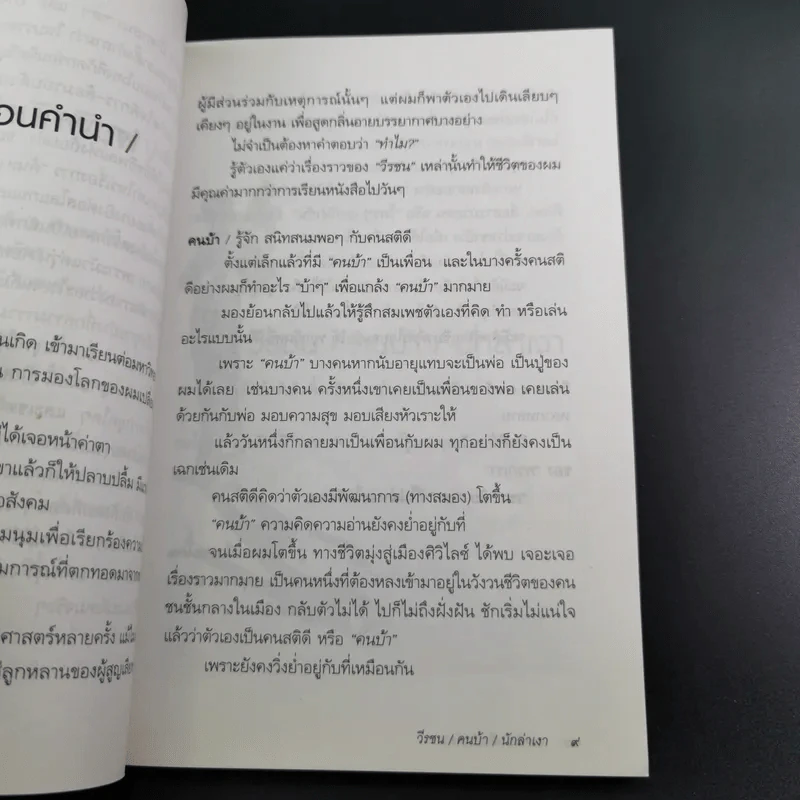 อนคำนำ /
นเกิด เข้ามาเรียนต่อมหาวิทย
น การมองโลกของผมเปลี่ย
ได้เจอหน้าค่าตา
ขาแล้วก็ให้ปลาบปลื้ม มี
อสังคม
มนุมเพื่อเรียกร้องความ
มการณ์ที่ตกทอดมาจาก
ศาสตร์หลายครั้ง แม้ไม่
ลูกหลานของผู้สูญเสีย
ผู้มีส่วนร่วมกับเหตุการณ์นั้นๆ แต่ผมก็พาตัวเองไปเดินเลียบๆ
เคียงๆ อยู่ในงาน เพื่อสูดกลิ่นอายบรรยากาศบางอย่าง
ไม่จำเป็นต้องหาคำตอบว่า "ทำไม?"
รู้ตัวเองแค่ว่าเรื่องราวของ "วีรชน" เหล่านั้นทำให้ชีวิตของผม
มีคุณค่ามากกว่าการเรียนหนังสือไปวันๆ
คนบ้า / รู้จัก สนิทสนมพอๆ กับคนสติดี
ตั้งแต่เล็กแล้วที่มี "คนบ้า" เป็นเพื่อน และในบางครั้งคนสติ
ดีอย่างผมก็ทำอะไร "บ้าๆ" เพื่อแกล้ง "คนบ้า" มากมาย
มองย้อนกลับไปแล้วให้รู้สึกสมเพชตัวเองที่คิด ทำ หรือเล่น
อะไรแบบนั้น
เพราะ "คนบ้า" บางคนหากนับอายุแทบจะเป็นพ่อ เป็นปู่ของ
ผมได้เลย เช่นบางคน ครั้งหนึ่งเขาเคยเป็นเพื่อนของพ่อ เคยเล่น
ด้วยกันกับพ่อ มอบความสุข มอบเสียงหัวเราะให้
แล้ววันหนึ่งก็กลายมาเป็นเพื่อนกับผม ทุกอย่างก็ยังคงเป็น
เฉกเช่นเดิม
คนสติดีคิดว่าตัวเองมีพัฒนาการ (ทางสมอง) โตขึ้น
"คนบ้า" ความคิดความอ่านยังคงย่ำอยู่กับที่
จนเมื่อผมโตขึ้น ทางชีวิตมุ่งสู่เมืองศิวิไลซ์ ได้พบ เจอะเจอ
เรื่องราวมากมาย เป็นคนหนึ่งที่ต้องหลงเข้ามาอยู่ในวังวนชีวิตของคน
ชนชั้นกลางในเมือง กลับตัวไม่ได้ ไปก็ไม่ถึงฝั่งฝัน ชักเริ่มไม่แน่ใจ
แล้วว่าตัวเองเป็นคนสติดี หรือ "คนบ้า"
เพราะยังคงวิ่งย่ำอยู่กับที่เหมือนกัน
วีรชน / คนบ้า / นักล่าเงา ๙